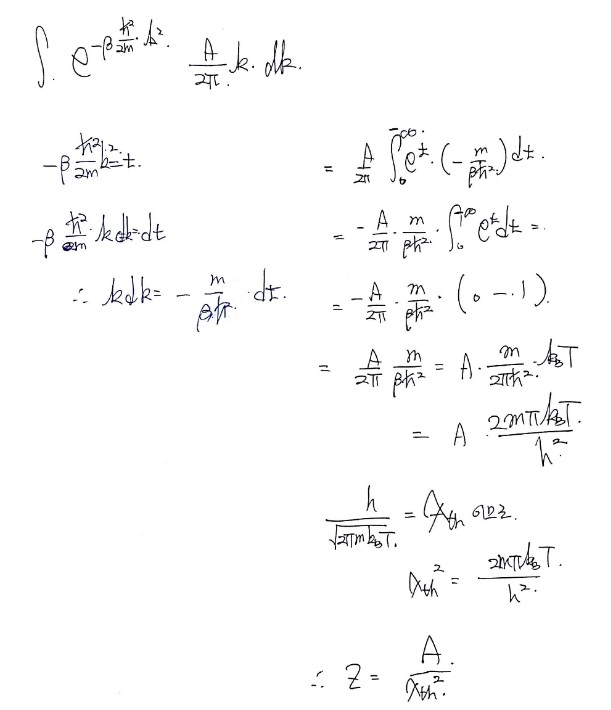 ∫. e^{-β ħ²/2m · k²} A/2π. k. dk.
-β ħ²/2m k² = t.
-β ħ²/m · kdk = dt
∴ kdk = - m/βħ² · dt.
= A/2π ∫₀^{-∞} e^t · (- m/βħ²) dt.
= - A/2π · m/βħ² · ∫₀^{-∞} e^t dt =
= - A/2π · m/βħ² · (0 - 1).
= A/2π m/βħ² = A · m/2πħ² · k_BT
= A · 2mπk_BT/h²
h/√2πmk_BT = λ_th 이므로.
λ_th² = 2mπk_BT/h²
∴ Z = A/λ_th²